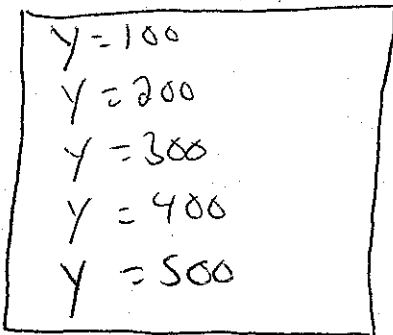 y=100
y=200
y=300
y=400
y=500